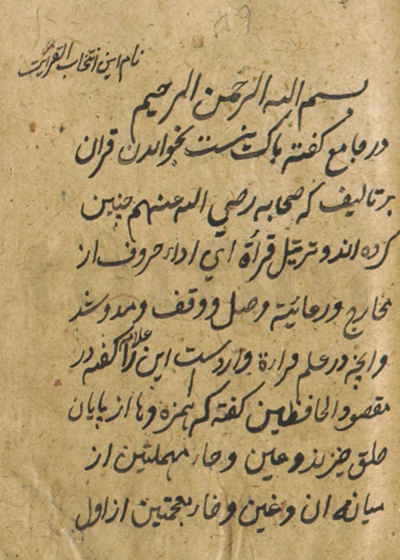 نام این انتخاب القرایت
بسم الله الرحمن الرحیم
در جامع کفته باک نیست بخواندن قران
بر تالیف که صحابه رضی الله عنهم چنین
کرده اند و ترتیل قرأة ای اداء حروف از
مخارج و رعایت وصل و وقف و مد و شد
و انچه در علم قراءة وارد ست این را کفته در
مقصود الحافظین کفته که همزه و ها از پایان
حلق خیزند و عین و حاء مهملتین از
میانه ان و غین و خاء معجمتین از اول